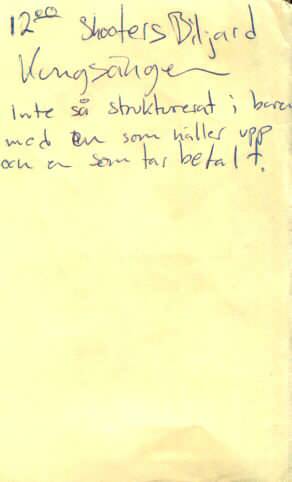 12⁰⁰ Shooters Biljard
Kungsängen
inte så strukturerat i baren
med en som häller upp
och en som tar betalt.